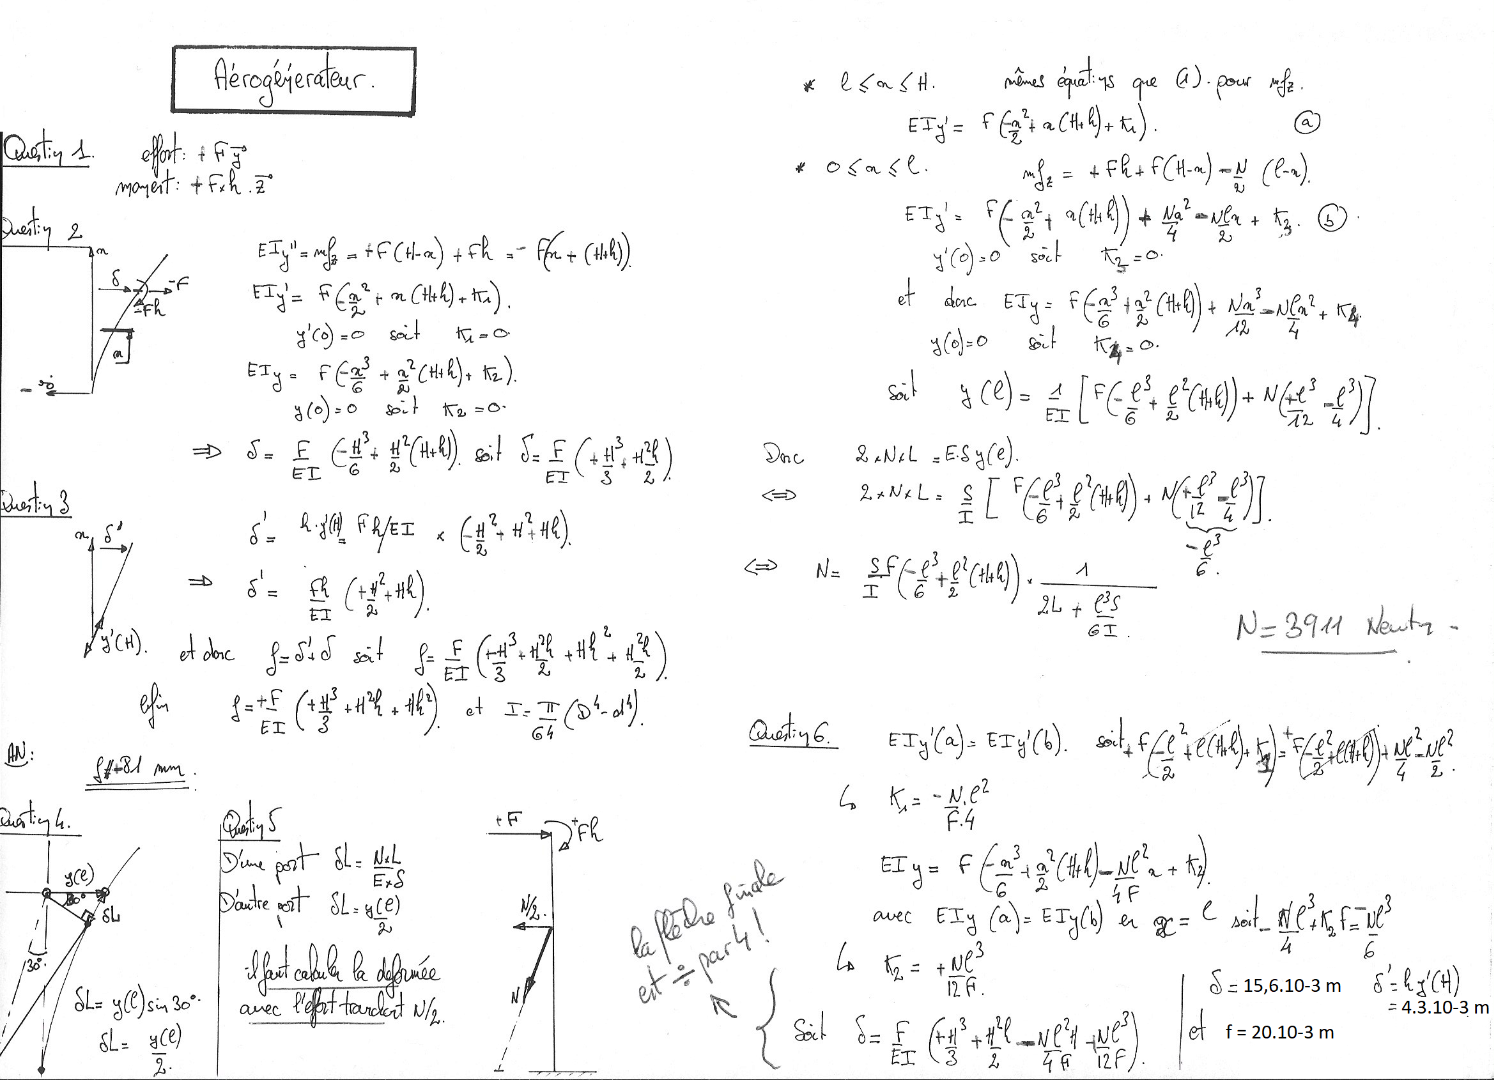 Aérogénérateur.
Question 1.
effort: + F y⃗
moment: + F×h . z⃗
Question 2
x
δ
-F
-Fh
x
EIy'' = mfz = +F(H-x) + Fh = - F(x + (H+h))
EIy' = F(-x²/2 + x(H+h) + K₁).
y'(0) = 0 soit K₁ = 0
EIy = F(-x³/6 + x²/2 (H+h) + K₂).
y(0) = 0 soit K₂ = 0.
⇒ δ = F/EI (-H³/6 + H²/2 (H+h)). soit δ = F/EI (+H³/3 + H²h/2).
Question 3
x
δ'
y'(H).
δ' = h.y'(H) = Fh/EI × (-H²/2 + H² + Hh).
⇒ δ' = Fh/EI (+H²/2 + Hh).
et donc f = δ' + δ soit f = F/EI (+H³/3 + H²h/2 + Hh² + H²h/2).
Enfin f = +F/EI (+H³/3 + H²h + Hh²) et I = π/64 (D⁴ - d⁴).
AN:
f = +81 mm.
Question 4.
y(l)
30°
δL
30°
δL = y(l) sin 30°.
δL = y(l)/2.
Question 5
D'une part δL = N×L/E×S
D'autre part δL = y(l)/2
il faut calculer la déformée
avec l'effort tranchant N/2.
+F
+Fh
N/2.
N
* l ≤ x ≤ H. mêmes équations que (1). pour mfz.
EIy' = F(-x²/2 + x(H+h) + K₁). (a)
* 0 ≤ x ≤ l. mfz = +Fh + F(H-x) - N/2 (l-x).
EIy' = F(-x²/2 + x(H+h)) + Nx²/4 - Nlx/2 + K₃. (b).
y'(0) = 0 soit K₂ = 0.
et donc EIy = F(-x³/6 + x²/2 (H+h)) + Nx³/12 - Nlx²/4 + K₄.
y(0) = 0 soit K₄ = 0.
soit y(l) = 1/EI [F(-l³/6 + l²/2 (H+h)) + N(+l³/12 - l³/4)].
Donc 2×N×L = E.S y(l).
⇔ 2×N×L = S/I [F(-l³/6 + l²/2 (H+h)) + N(+l³/12 - l³/4)].
-l³/6.
⇔ N = SF/I (-l³/6 + l²/2 (H+h)) × 1/(2L + l³S/6I).
N = 3911 Newton -
Question 6.
EIy'(a) = EIy'(b). soit + F(-l²/2 + l(H+h) + K₁) = + F(-l²/2 + l(H+h)) + Nl²/4 - Nl²/2.
↳ K₁ = - N.l²/F.4
EIy = F(-x³/6 + x²/2 (H+h) - Nl²/4F x + K₂)
avec EIy (a) = EIy(b) en x = l soit - Nl³/4 + K₂F = -Nl³/6
↳ K₂ = +Nl³/12F.
Soit δ = F/EI (+H³/3 + H²h/2 - Nl²H/4F + Nl³/12F).
la flèche finale
est ÷ par 4!
δ = 15,6.10-3 m
δ' = h y'(H)
= 4.3.10-3 m
et f = 20.10-3 m